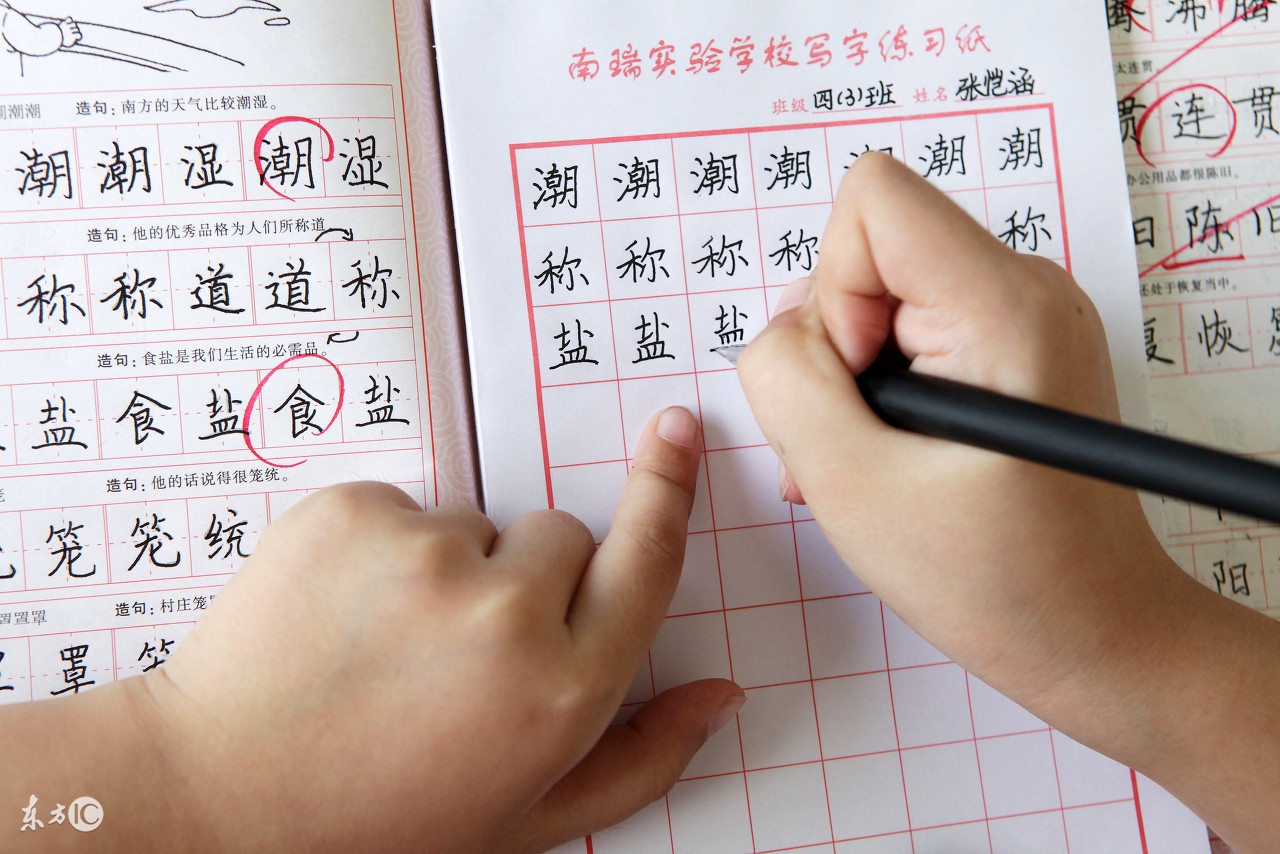 潮潮 造句：南方的天气比较潮湿。
潮 潮 湿 潮 湿
造句：他的优秀品格为人们所称道
称 称 道 道 称
造句：食盐是我们生活的必需品。
盐 食 盐 食 盐
造句：他的话说得很笼统。
笼 笼 统
罩罩罩 造句：村庄笼
罩 笼
南瑞实验学校写字练习纸
班级 四(3)班 姓名 张恺涵
潮 潮 潮 潮 潮 潮 潮
称 称 称 称 称
盐 盐 盐
沸 腾
太连贯
贯 连 贯
办公用品都很陈旧。
旧 陈 旧
还处于恢复当中。
复 恢
阳
东方IC